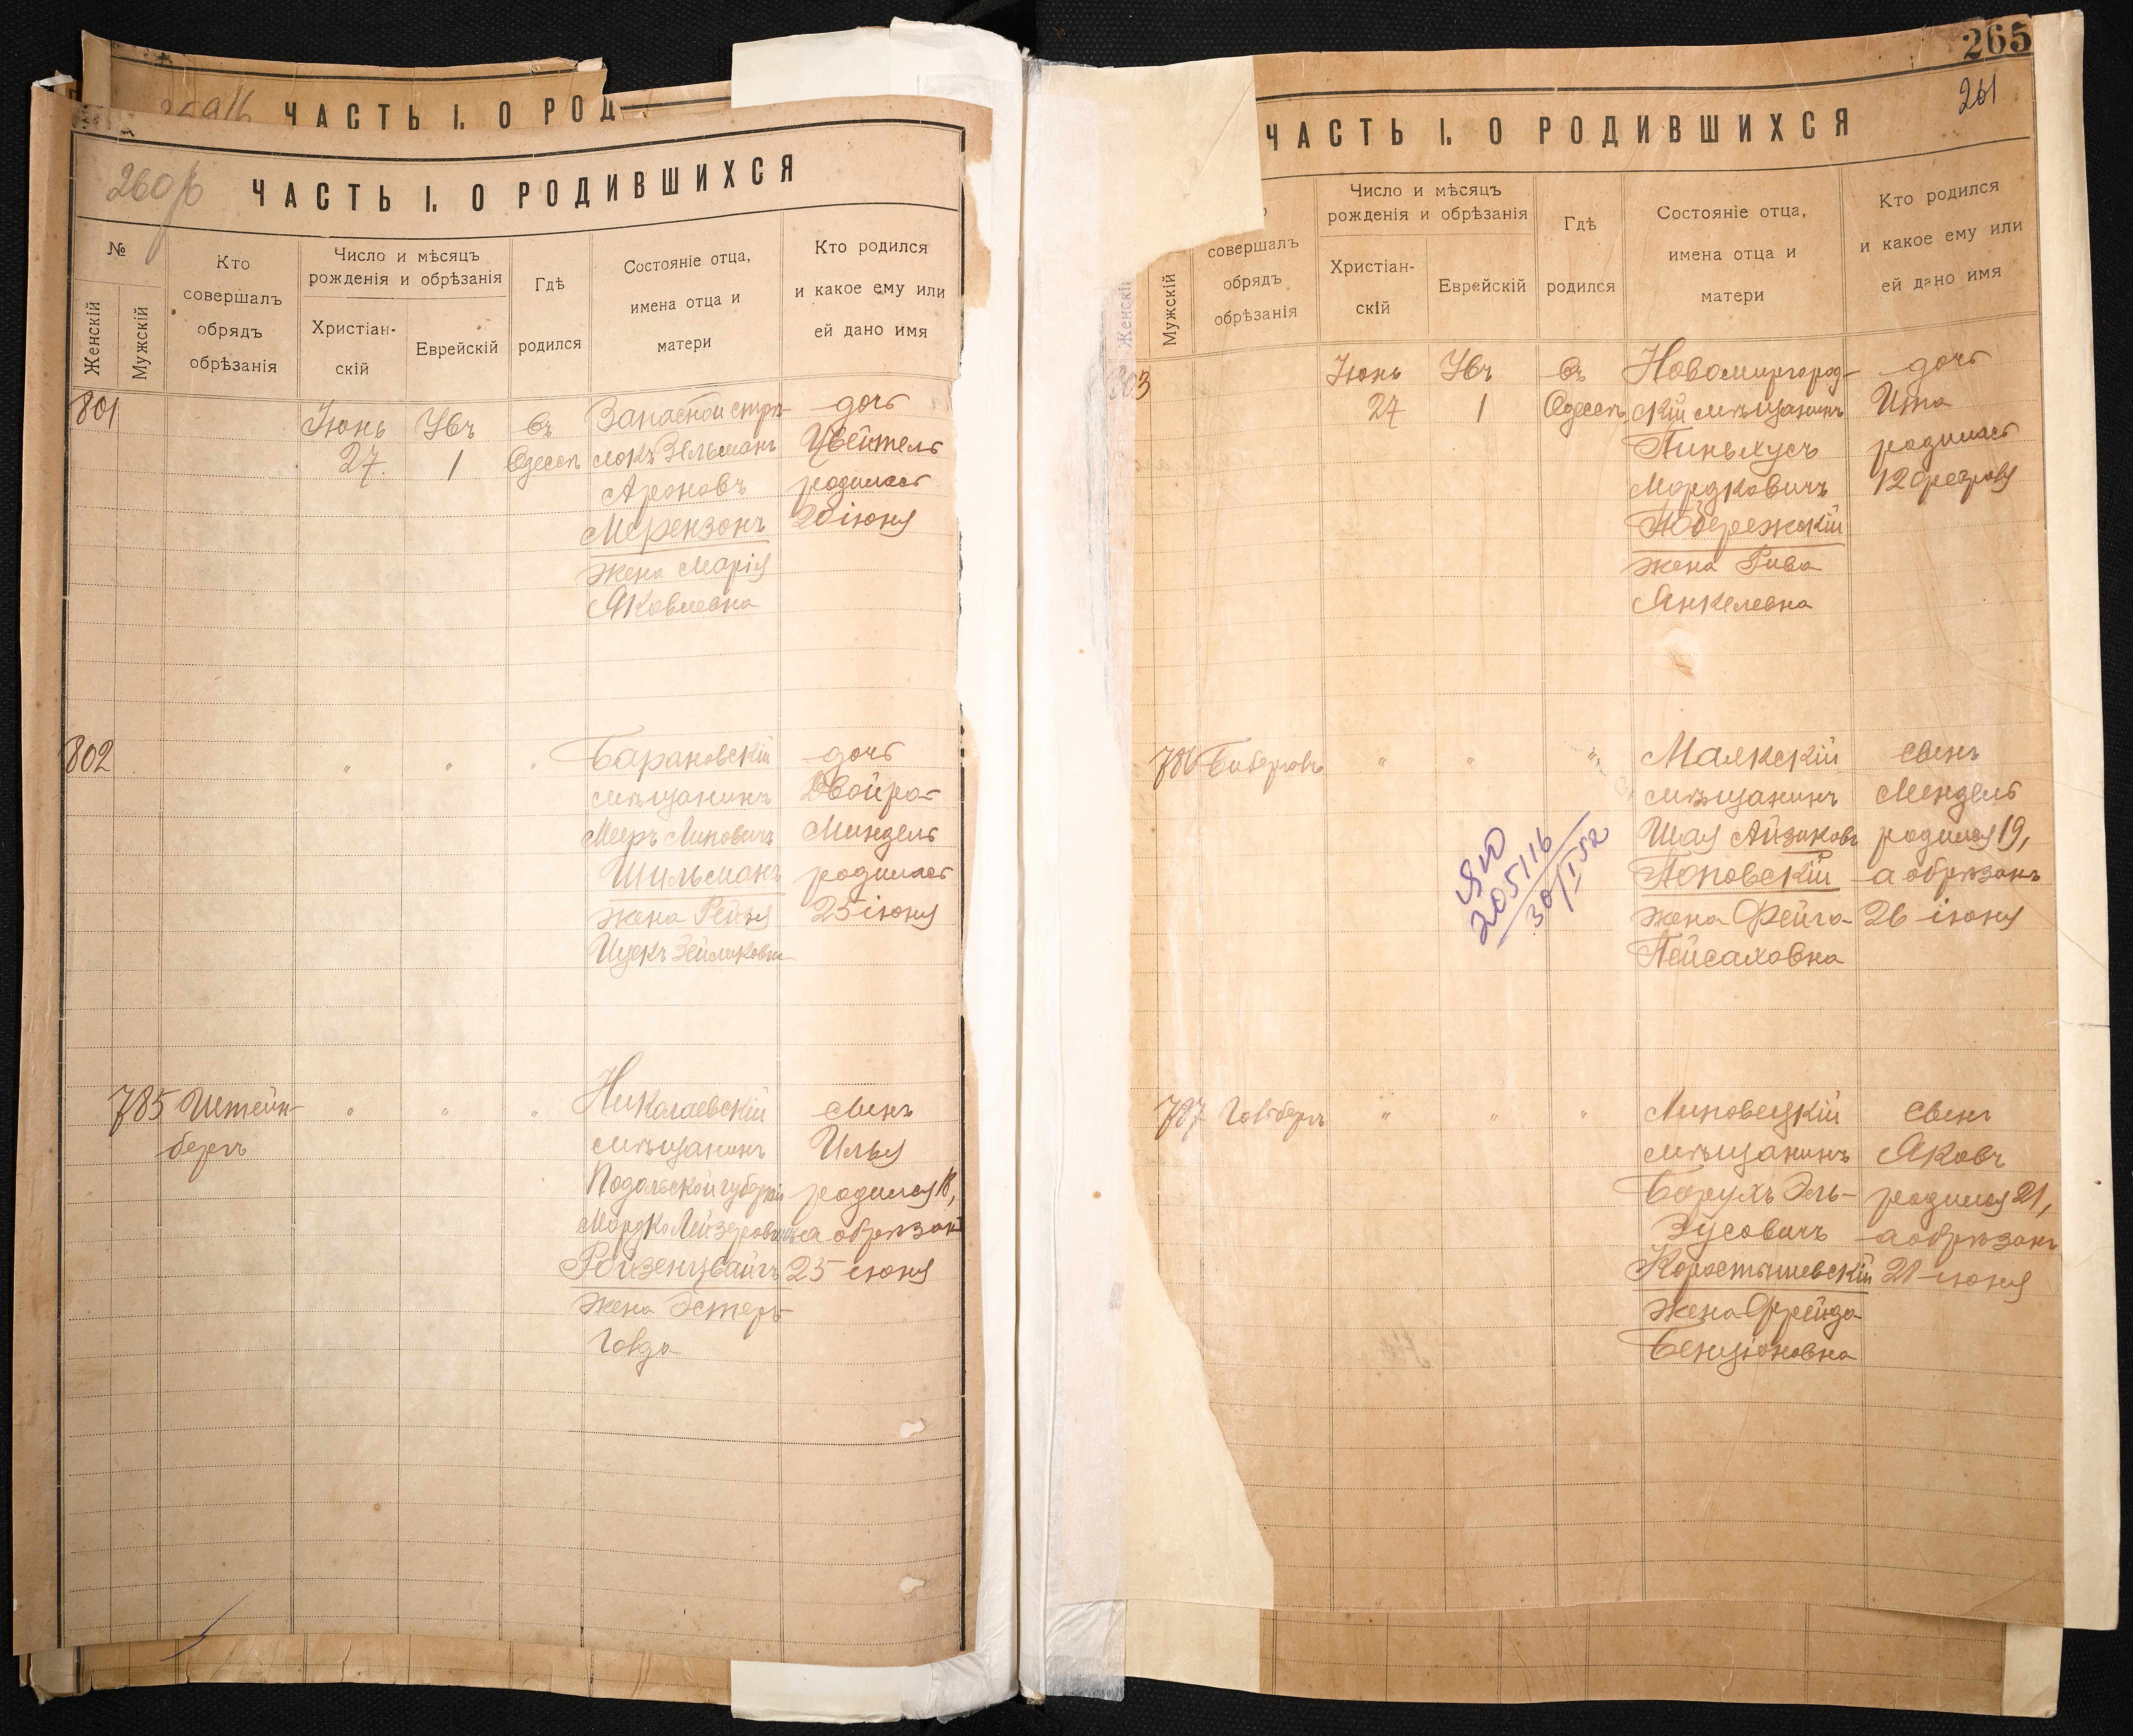 ЧАСТЬ I. О РОД
260/б
ЧАСТЬ I. О РОДИВШИХСЯ
№
Женскій
Мужскій
Кто
совершалъ
обрядъ
обрѣзанія
Число и мѣсяцъ
рожденія и обрѣзанія
Христіан-
скій
Еврейскій
Гдѣ
родился
Состояніе отца,
имена отца и
матери
Кто родился
и какое ему или
ей дано имя
801
Іюнь
27.
1
въ
Одессѣ
Запасной стрѣ-
локъ
Ароновъ
Мерензонъ
жена Марія
Яковлевна
дочь
Цвейтель
родилась
20 іюня
802
"
"
"
Барановскій
мѣщанинъ
Мееръ Липовичъ
Шильманъ
жена Рейзя
дочь
Двойра-
Миндель
родилась
25 іюня
785
Штейн-
бергъ
"
"
"
Николаевскій
мѣщанинъ
Подольской губерніи
Мордко Лейзеровичъ
Ройзенцвайгъ
жена Эстеръ-
Голда
сынъ
Илья
родился 18,
а обрѣзанъ
25 іюня
265
261
ЧАСТЬ I. О РОДИВШИХСЯ
Женскій
Мужскій
совершалъ
обрядъ
обрѣзанія
Число и мѣсяцъ
рожденія и обрѣзанія
Христіан-
скій
Еврейскій
Гдѣ
родился
Состояніе отца,
имена отца и
матери
Кто родился
и какое ему или
ей дано имя
803
Іюнь
27
1
въ
Одессѣ
Новомиргород-
скій мѣщанинъ
Пиньхусъ
Мордковичъ
Побережскій
жена Рива
Янкелевна
дочь
Ита
родилась
12 февраля
786
"
"
"
Маякскій
мѣщанинъ
Шая Айзиковъ
Поповскій
жена Фейга-
Пейсаховна
сынъ
Мендель
родился 19,
а обрѣзанъ
26 іюня
205116
30/I 52
787
Гольдбергъ
"
"
"
Липовецкій
мѣщанинъ
Борухъ Эль-
Зусовичъ
Коростышевскій
жена Фрейда
Бенціоновна
сынъ
Яковъ
родился 21,
а обрѣзанъ
28 іюня